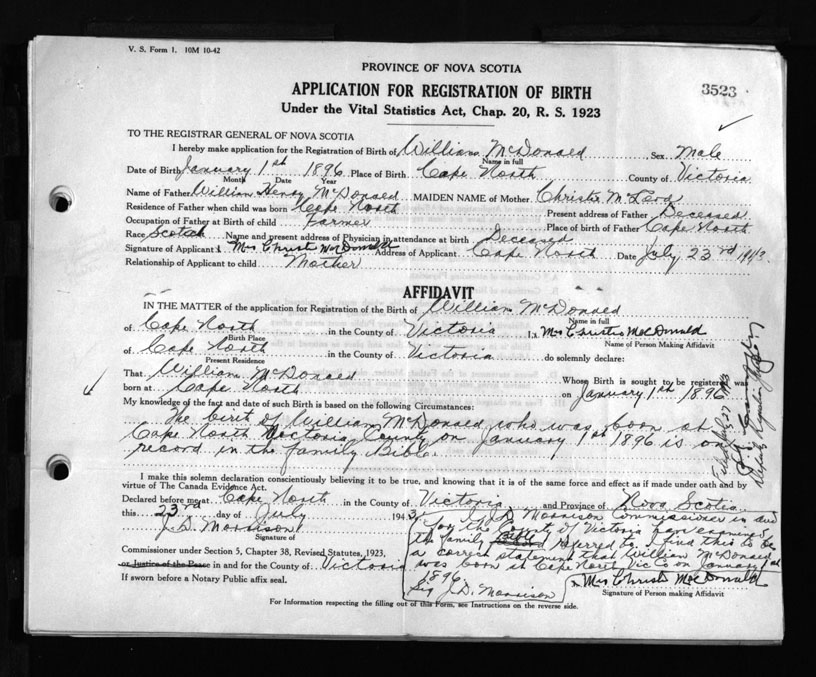 V. S. Form 1. 10M 10-42
PROVINCE OF NOVA SCOTIA
APPLICATION FOR REGISTRATION OF BIRTH
3523
Under the Vital Statistics Act, Chap. 20, R. S. 1923
TO THE REGISTRAR GENERAL OF NOVA SCOTIA
I hereby make application for the Registration of Birth of William McDonald Sex Male
Name in full
Date of Birth January 1st 1896 Place of Birth Cape North County of Victoria
Month Date Year
Name of Father William Henry McDonald MAIDEN NAME of Mother Christie McLeod
Residence of Father when child was born Cape North Present address of Father Deceased
Occupation of Father at Birth of child Farmer Place of birth of Father Cape North
Race Scotish Name and present address of Physician in attendance at birth Deceased
Signature of Applicant Mrs Christi McDonald Address of Applicant Cape North Date July 23rd 1943
Relationship of Applicant to child Mother
AFFIDAVIT
IN THE MATTER of the application for Registration of the Birth of William McDonald
Name in full
of Cape North in the County of Victoria I, Mrs Christi McDonald
Birth Place Name of Person Making Affidavit
of Cape North in the County of Victoria do solemnly declare:
Present Residence
That William McDonald Whose Birth is sought to be registered was
born at Cape North on January 1st 1896
My knowledge of the fact and date of such Birth is based on the following Circumstances:
The birth of William McDonald who was born at
Cape North Victoria County on January 1st 1896 is on
record in the family Bible.
I make this solemn declaration conscientiously believing it to be true, and knowing that it is of the same force and effect as if made under oath and by
virtue of The Canada Evidence Act.
Declared before me at Cape North in the County of Victoria and Province of Nova Scotia
this 23rd day of July 1943
J. D. Morrison
Signature of
Commissioner under Section 5, Chapter 38, Revised Statutes, 1923,
or Justice of the Peace in and for the County of Victoria
If sworn before a Notary Public affix seal.
I J. D. Morrison Commissioner in and
for the County of Victoria have examined
the family Bible referred to. I find this to be
a correct statement that William McDonald
was born at Cape North Victo on January 1st
1896
Sig J. D. Morrison
Mrs Christi McDonald
Signature of Person making Affidavit
For Information respecting the filling out of this Form, see Instructions on the reverse side.